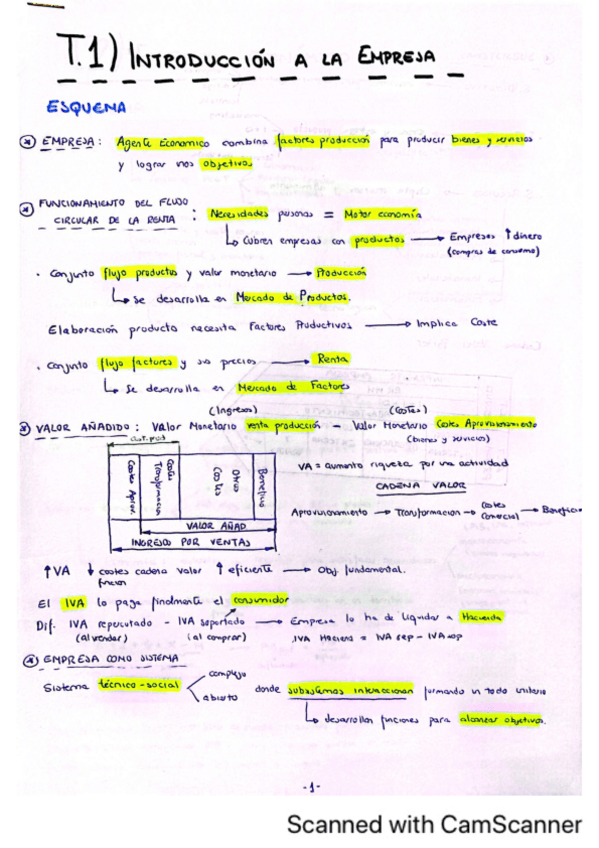 T.1) INTRODUCCIÓN A LA EMPRESA
ESQUEMA
* EMPRESA: Agente Económico combina factores producción para producir bienes y servicios
y lograr unos objetivos
* FUNCIONAMIENTO DEL FLUJO
CIRCULAR DE LA RENTA : Necesidades personas = Motor economía
↳ Cubren empresas con productos → Empresas ↑ dinero
(compras de consumo)
· Conjunto flujo productos y valor monetario → Producción
↳ Se desarrolla en Mercado de Productos.
Elaboración producto necesita Factores Productivos → Implica Coste
· Conjunto flujo factores y sus precios → Renta
↳ Se desarrolla en Mercado de Factores
(Ingresos) (Costes)
* VALOR AÑADIDO: Valor Monetario venta producción - Valor Monetario Costes Aprovisionamiento
(bienes y servicios)
Cost. prod
Costes Aprov.
Costes Transformación
Otros Costes
Beneficio
VALOR AÑAD
INGRESOS POR VENTAS
VA = aumento riqueza por una actividad
CADENA VALOR
Aprovisionamiento → Transformación → Costes Comercial → Benefici
↑VA ↓ costes cadena valor ↑ eficiente → Obj. fundamental.
El IVA lo paga finalmente el consumidor
Dif. IVA repercutado - IVA soportado → Empresa lo ha de liquidar a Hacienda
(al vender) (al comprar) IVA Hacienda = IVA rep - IVA sop
* EMPRESA COMO SISTEMA
Sistema técnico-social
complejo
abierto
donde subsistemas interaccionan formando un todo unitario
↳ desarrollan funciones para alcanzar objetivos.
-1-
Scanned with CamScanner